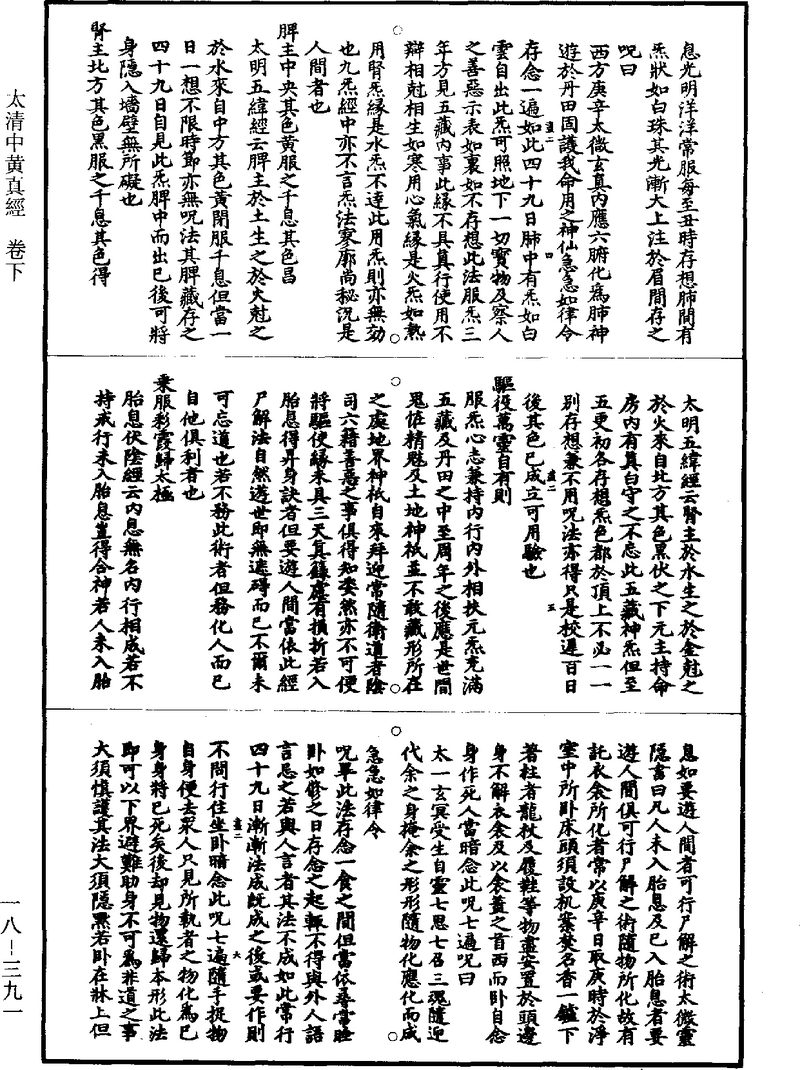 息光明洋洋常服每至丑時存想肺間有
炁狀如白珠其光漸大上注於眉間存之
呪曰
西方庚辛太微玄真內應六腑化爲肺神
遊於丹田固護我命用之神仙急急如律令
存念一遍如此四十九日肺中有炁如白
雲自出此炁可照地下一切寶物及察人
之善惡示表如裏如不存想此法服炁三
年方見五藏內事此緣不具真行使用不
辯相尅相生如寒用心氣緣是火炁如熱
用腎炁緣是水炁不達此用炁則亦無効
也九炁經中亦不言炁法寥廓尚秘況是
人間者也
脾主中央其色黃服之千息其色昌
太明五緯經云脾主於土生之於火尅之
於水來自中方其色黃閉服千息但當一
日一想不限時節亦無呪法其脾藏存之
四十九日自見此炁脾中而出已後可將
身隱入墻壁無所礙也
腎主北方其色黑服之千息其色得
太明五緯經云腎主於水生之於金尅之
於火來自北方其色黑伏之下元主持命
房內有真白守之不忘此五藏神炁但至
五更初各存想炁色都於頂上不必一一
別存想兼不用呪法亦得只是校遲百日
後其色已成立可用驗也
驅役萬靈自有則
服炁心志兼持內行內外相扶元炁充滿
五藏及丹田之中至周年之後應是世間
鬼恠精魅及土地神祇並不敢藏形所在
之處地界神祇自來拜迎常隨衛道者陰
司六籍善惡之事俱得知委然亦不可便
將驅使緣未具三天真籙慮有損折若入
胎息得昇身訣者但要遊人間當依此經
尸解法自然遊世即無遮碍而已不爾未
可忘道也若不務此術者但務化人而已
自他俱利者也
乘服彩霞歸太極
胎息伏陰經云內息無名內行相成若不
持戒行未入胎息豈得合神若人未入胎
息如要遊人間者可行尸解之術太微靈
隱書曰凡人未入胎息及已入胎息者要
遊人間俱可行尸解之術隨物所化故有
託衣衾所化者常以庚辛日取庚時於淨
室中所卧床頭須設机案焚名香一鑪下
著柱者龍杖及履鞋等物盡安置於頭邊
身不解衣衾及以衾蓋之首西而卧自念
身作死人當暗念此呪七遍呪曰
太一玄冥受生自靈七思七召三魂隨迎
代余之身掩余之形形隨物化應化而成
急急如律令
呪畢此法存念一食之間但當依尋常睡
卧如修之日存念之起輒不得與外人語
言忌之若與人言者其法不成如此常行
四十九日漸漸法成既成之後或要作則
不問行住坐卧暗念此呪七遍隨手捉物
自身便去衆人只見所執者之物化爲已
身身將已死矣後却見物還歸本形此法
即可以下界避難助身不可爲非道之事
大須慎護其法大須隱默若卧在牀上但
太清中黃真經 卷下
一八-三九一